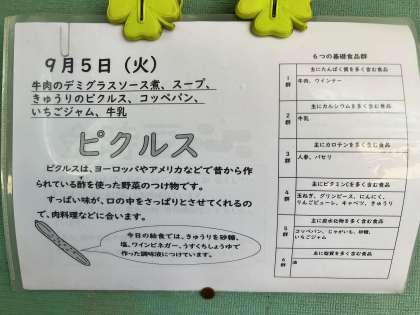 9月5日(火)
牛肉のデミグラスソース煮、スープ、
きゅうりのピクルス、コッペパン、
いちごジャム、牛乳
ピクルス
ピクルスは、ヨーロッパやアメリカなどで昔から作
られている酢を使った野菜のつけ物です。
すっぱい味が、口の中をさっぱりとさせてくれるの
で、肉料理などに合います。
今日の給食では、きゅうりを砂糖、
塩、ワインビネガー、うすくちしょうゆで
作った調味液につけています。
6つの基礎食品群
1群
主にたんぱく質を多く含む食品
牛肉、ウインナー
2群
主にカルシウムを多く含む食品
牛乳
3群
主にカロテンを多く含む食品
人参、パセリ
4群
主にビタミンCを多く含む食品
玉ねぎ、グリンピース、にんにく、
りんごピューレ、キャベツ、きゅうり
5群
主に炭水化物を多く含む食品
コッペパン、じゃがいも、砂糖、
いちごジャム
6群
主に脂質を多く含む食品
油